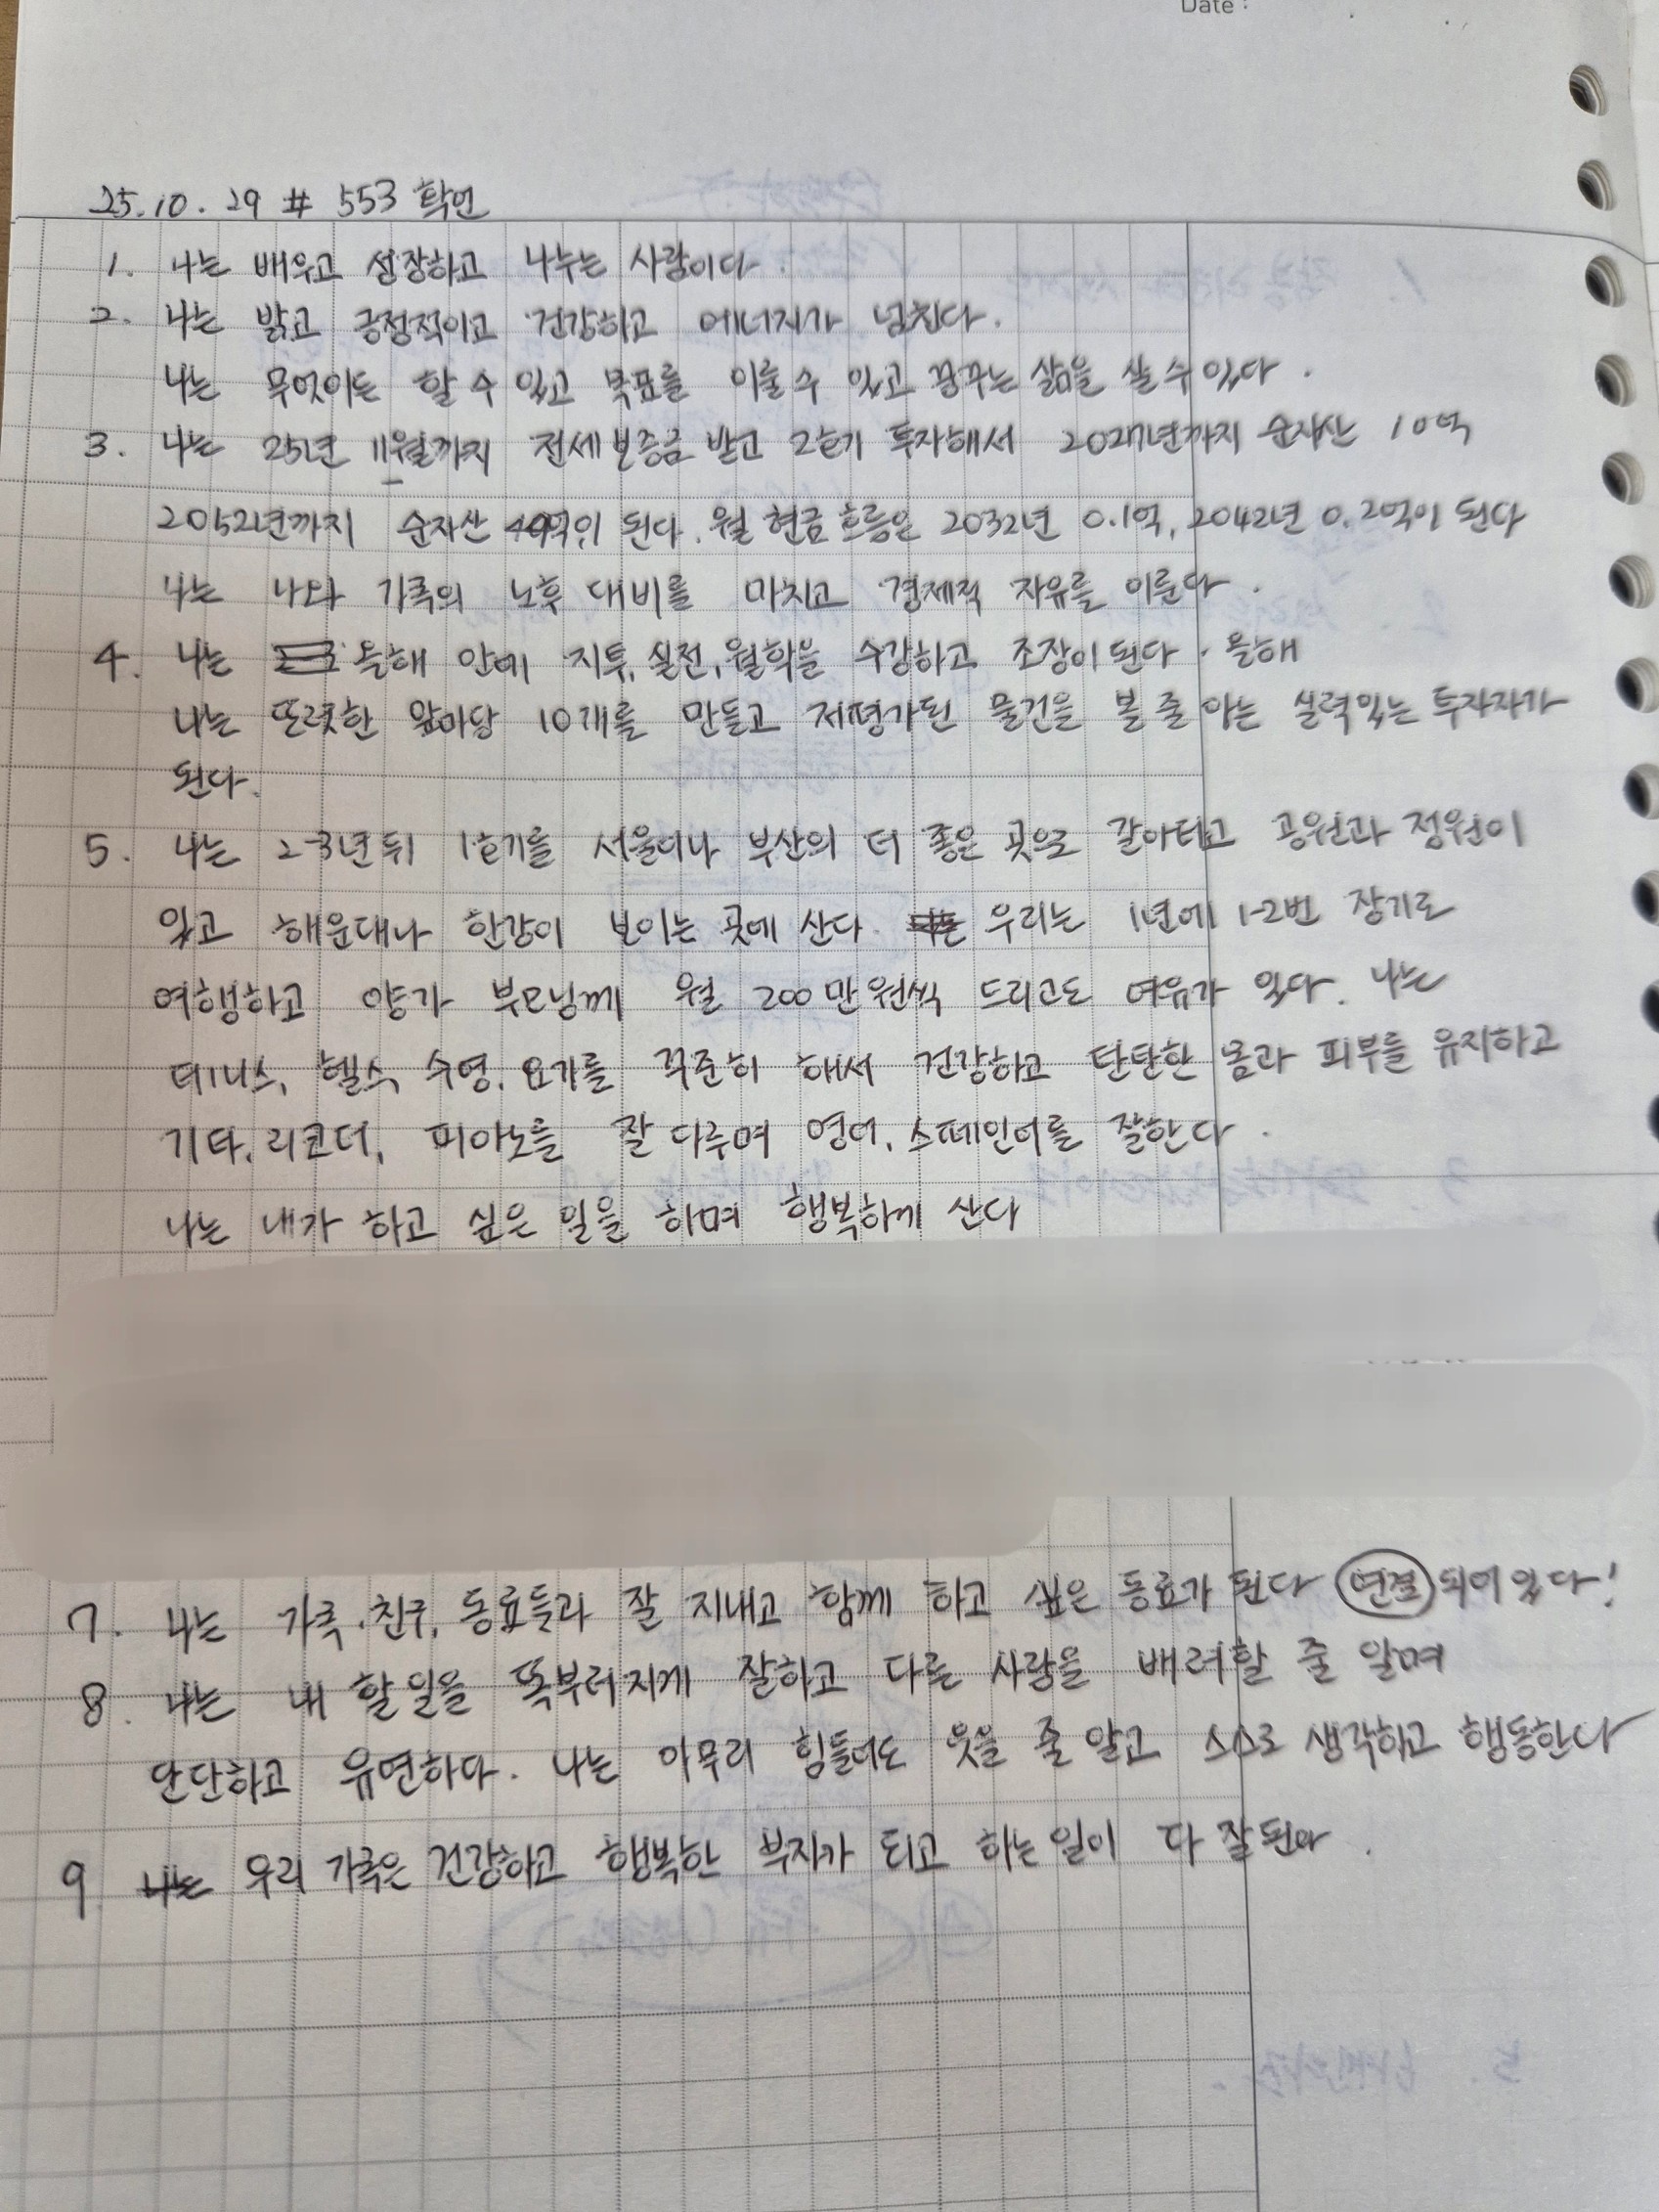 Date :
25.10.29 # 553 확언
1. 나는 배우고 성장하고 나누는 사람이다.
2. 나는 밝고 긍정적이고 건강하고 에너지가 넘친다.
나는 무엇이든 할 수 있고 목표를 이룰 수 있고 꿈꾸는 삶을 살 수 있다.
3. 나는 25년 11월까지 전세보증금 받고 2호기 투자해서 2027년까지 순자산 10억
2052년까지 순자산 40억이 된다. 월 현금흐름은 2032년 0.1억, 2042년 0.2억이 된다
나는 나와 가족의 노후 대비를 마치고 경제적 자유를 이룬다.
4. 나는 올해 안에 지투, 실전, 월학을 수강하고 조장이 된다. 올해
나는 또렷한 앞마당 10개를 만들고 저평가된 물건을 볼 줄 아는 실력있는 투자자가
된다.
5. 나는 2-3년 뒤 1호기를 서울이나 부산의 더 좋은 곳으로 갈아타고 공원과 정원이
있고 해운대나 한강이 보이는 곳에 산다. 우리는 1년에 1-2번 장기로
여행하고 양가 부모님께 월 200만원씩 드리고도 여유가 있다. 나는
테니스, 헬스, 수영, 요가를 꾸준히 해서 건강하고 탄탄한 몸과 피부를 유지하고
기타, 리코더, 피아노를 잘 다루며 영어, 스페인어를 잘한다.
나는 내가 하고 싶은 일을 하며 행복하게 산다
7. 나는 가족, 친구, 동료들과 잘 지내고 함께 하고 싶은 동료가 된다 연결되어 있다!
8. 나는 내 할 일을 똑부러지게 잘하고 다른 사람을 배려할 줄 알며
단단하고 유연하다. 나는 아무리 힘들어도 웃을 줄 알고 스스로 생각하고 행동한다
9. 나는 우리 가족은 건강하고 행복한 부자가 되고 하는 일이 다 잘된다.